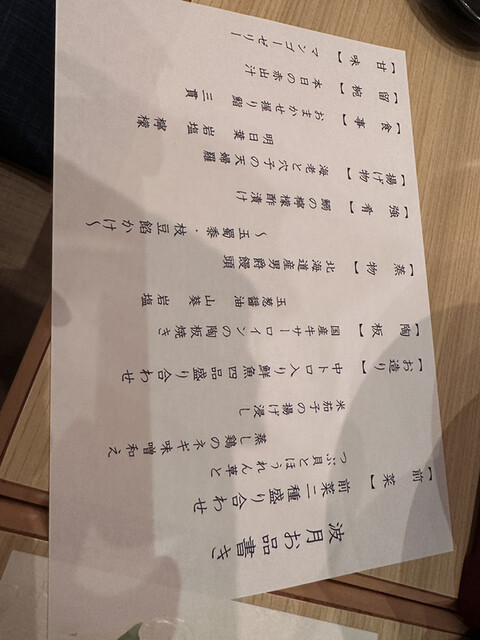 波月お品書き
【前菜】
前菜二種盛り合わせ
つぶ貝とほうれん草と
蒸し鶏のネギ味噌和え
米茄子の揚げ浸し
【お造り】
中トロ入り鮮魚四品盛り合わせ
【陶板】
国産牛サーロインの陶板焼き
玉葱醤油 山葵 岩塩
【蒸物】
北海道産男爵饅頭
～玉蜀黍・枝豆餡かけ～
【強肴】
鰯の檸檬酢漬け
【揚げ物】
海老と穴子の天婦羅
明日葉 岩塩 檸檬
【食事】
おまかせ握り鮨 三貫
【留椀】
本日の赤出汁
【甘味】
マンゴーゼリー